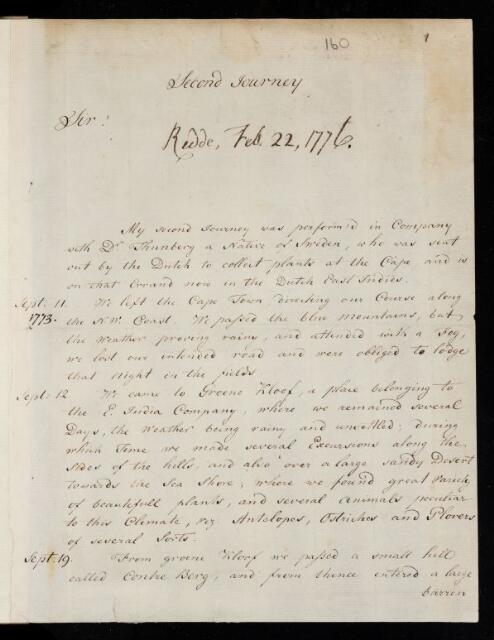 160
1
Second Journey
Sir!
Redde, Feb. 22, 1776.
My second Journey was perform'd in Company
with Dr. Thunberg a Native of Sweden, who was seat
out by the Dutch to collect plants at the Cape, and is
on that Errand now in the Dutch East Indies.
Sept. 11. We left the Cape Town, directing our Course along
1773. the N.W. Coast. We passed the blue mountains, but
the Weather proving rainy, and attended with a Fog,
we lost our intended road and were obliged to lodge
that night in the fields.
Sept: 12 We came to Groene Kloof, a place belonging to
the E. India Company, where we remained several
Days, the Weather being rainy and unsettled; during
which Time we made several Excursions along the
sides of the hills, and also over a large sandy Desert
towards the Sea Shore; where we found great
of beautifull plants, and several animals peculiar
to this Climate, Antelopes, Ostriches and Plovers
of several Sorts.
Sept. 19. From groene Kloof we passed a small hill
called Contre Berg, and from thence entered a large
barren